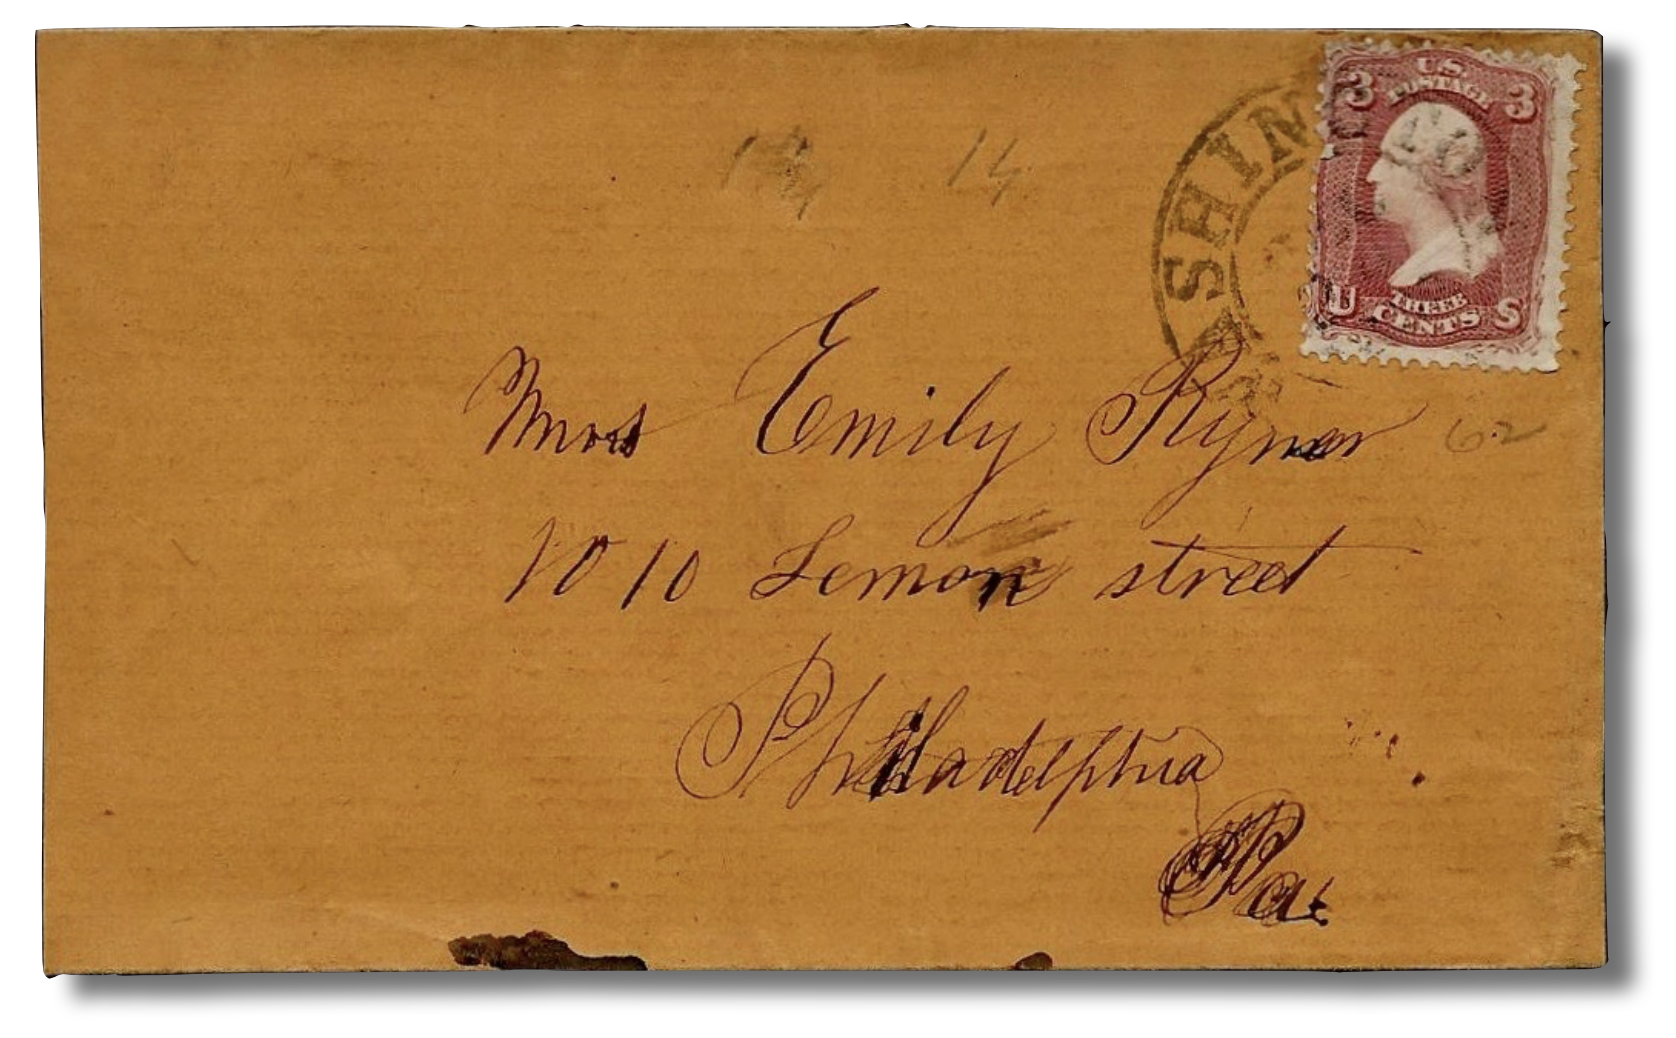 U.S.
POSTAGE
3 3
SHIN
U THREE S
CENTS
14
Mrs Emily Rymer
62
1010 Lemon street
Philadelphia
Pa.